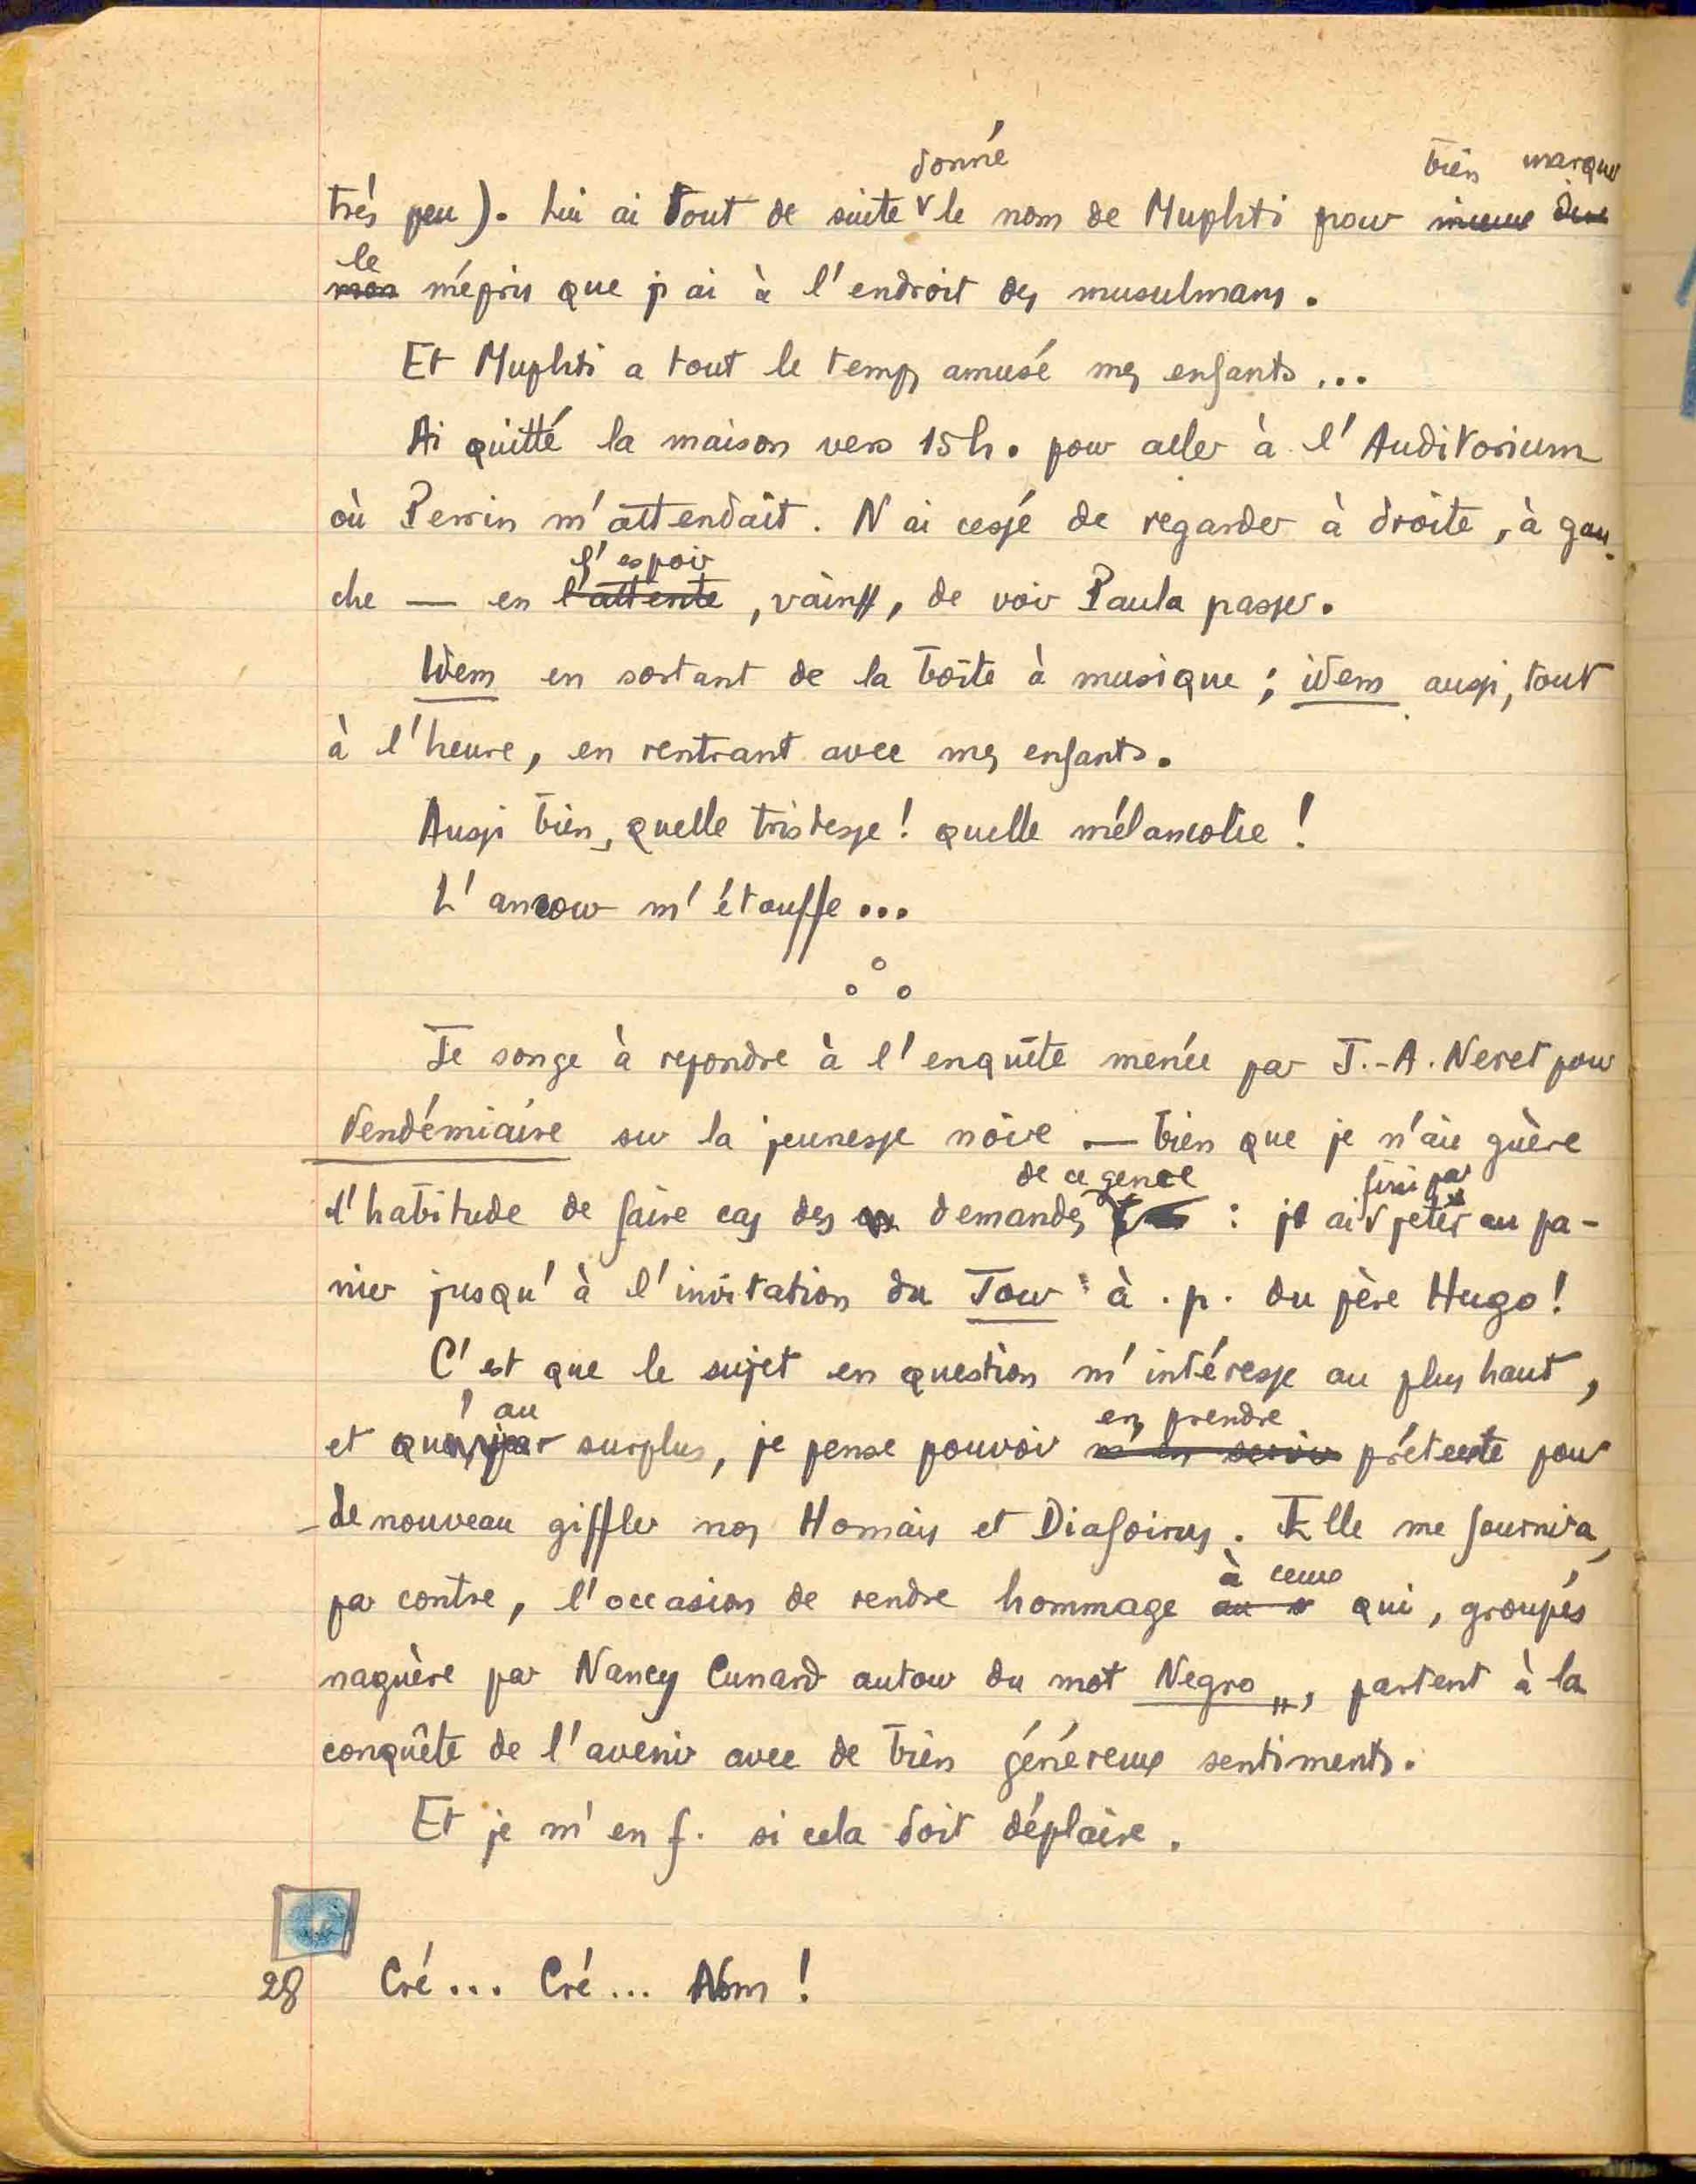 donné bien marquer
très peu). Lui ai tout de suite v le nom de Muphti pour mieux dire
le
mon mépris que j'ai à l'endroit des musulmans.
Et Muphti a tout le temps amusé mes enfants...
Ai quitté la maison vers 15h. pour aller à l'Auditorium
où Perrin m'attendait. N'ai cessé de regarder à droite, à gau-
l'espoir
che — en l'attente, vain, de voir Paula passer.
Idem en sortant de la boîte à musique ; idem aussi, tout
à l'heure, en rentrant avec mes enfants.
Aussi bien, quelle tristesse ! quelle mélancolie !
L'amour m'étouffe...
Je songe à repondre à l'enquête menée par J.-A. Neret pour
Vendémiaire sur la jeunesse noire — bien que je n'aie guère
de ce genre fini par
l'habitude de faire cas des demandes : je ai v jeter au pa-
nier jusqu'à l'invitation du Tour à . p. du père Hugo !
C'est que le sujet en question m'intéresse au plus haut,
au en prendre
et que, par surplus, je pense pouvoir m'en servir prétexte pour
de nouveau giffler nos Homais et Diafoirus. Elle me fournira,
à ceux
par contre, l'occasion de rendre hommage au qui, groupés
naguère par Nancy Cunard autour du mot Negro „, partent à la
conquête de l'avenir avec de bien généreux sentiments.
Et je m'en f. si cela doit déplaire.
28 Cré... Cré... Nom !